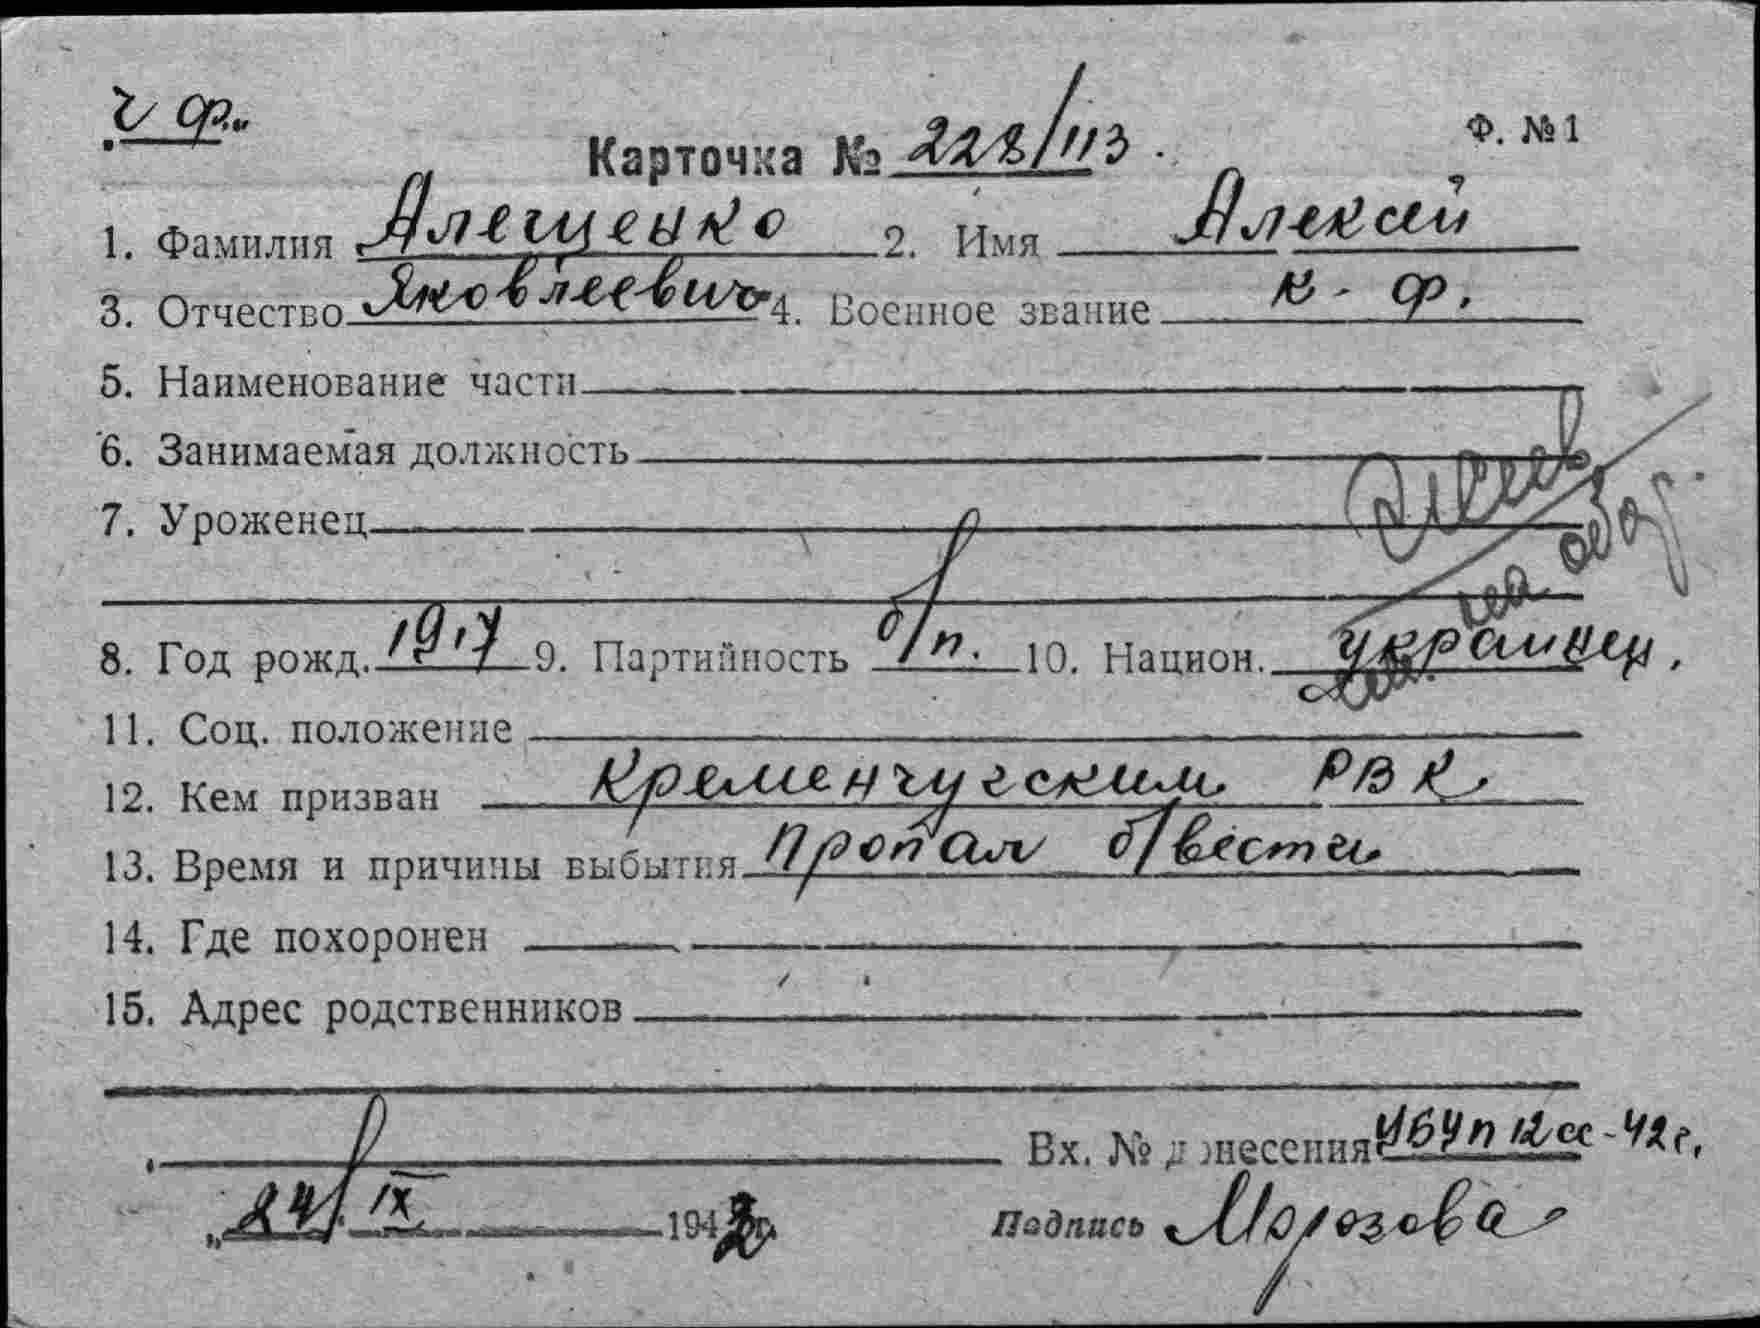 ч ф.
Ф. №1
Карточка № 228/113.
1. Фамилия Алещенко 2. Имя Алексей
3. Отчество Яковлевич 4. Военное звание к-ф.
5. Наименование части
6. Занимаемая должность
7. Уроженец
8. Год рожд. 1917 9. Партийность б/п. 10. Национ. украинец.
11. Соц. положение
12. Кем призван Кременчугским РВК.
13. Время и причины выбытия Пропал б/вести
14. Где похоронен
15. Адрес родственников
Вх. № донесения 464п 12сс-42г.
„24/IX 1942г.
Подпись Морозова
на обор.